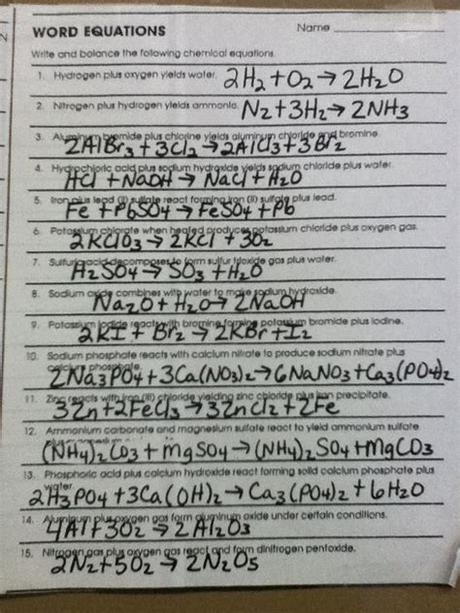 N
WORD EQUATIONS Name
Write and balance the following chemical equations.
1. Hydrogen plus oxygen yields water. 2H₂+O₂→2H₂O
2. Nitrogen plus hydrogen yields ammonia. N₂+3H₂→2NH₃
3. Aluminum bromide plus chlorine yields aluminum chloride and bromine.
2AlBr₃+3Cl₂→2AlCl₃+3Br₂
4. Hydrochloric acid plus sodium hydroxide yields sodium chloride plus water.
HCl+NaOH→NaCl+H₂O
5. Iron plus lead (II) sulfate react forming iron (II) sulfate plus lead.
Fe+PbSO₄→FeSO₄+Pb
6. Potassium chlorate when heated produces potassium chloride plus oxygen gas.
2KClO₃→2KCl+3O₂
7. Sulfuric acid decomposes to form sulfur trioxide gas plus water.
H₂SO₄→SO₃+H₂O
8. Sodium oxide combines with water to make sodium hydroxide.
Na₂O+H₂O→2NaOH
9. Potassium iodide reacts with bromine forming potassium bromide plus iodine.
2KI+Br₂→2KBr+I₂
10. Sodium phosphate reacts with calcium nitrate to produce sodium nitrate plus
calcium phosphate.
2Na₃PO₄+3Ca(NO₃)₂→6NaNO₃+Ca₃(PO₄)₂
11. Zinc reacts with iron (III) chloride yielding zinc chloride plus iron precipitate.
3Zn+2FeCl₃→3ZnCl₂+2Fe
12. Ammonium carbonate and magnesium sulfate react to yield ammonium sulfate
(NH₄)₂CO₃+MgSO₄→(NH₄)₂SO₄+MgCO₃
13. Phosphoric acid plus calcium hydroxide react forming solid calcium phosphate plus
water.
2H₃PO₄+3Ca(OH)₂→Ca₃(PO₄)₂+6H₂O
14. Aluminum plus oxygen gas form aluminum oxide under certain conditions.
4Al+3O₂→2Al₂O₃
15. Nitrogen gas plus oxygen gas react and form dinitrogen pentoxide.
2N₂+5O₂→2N₂O₅